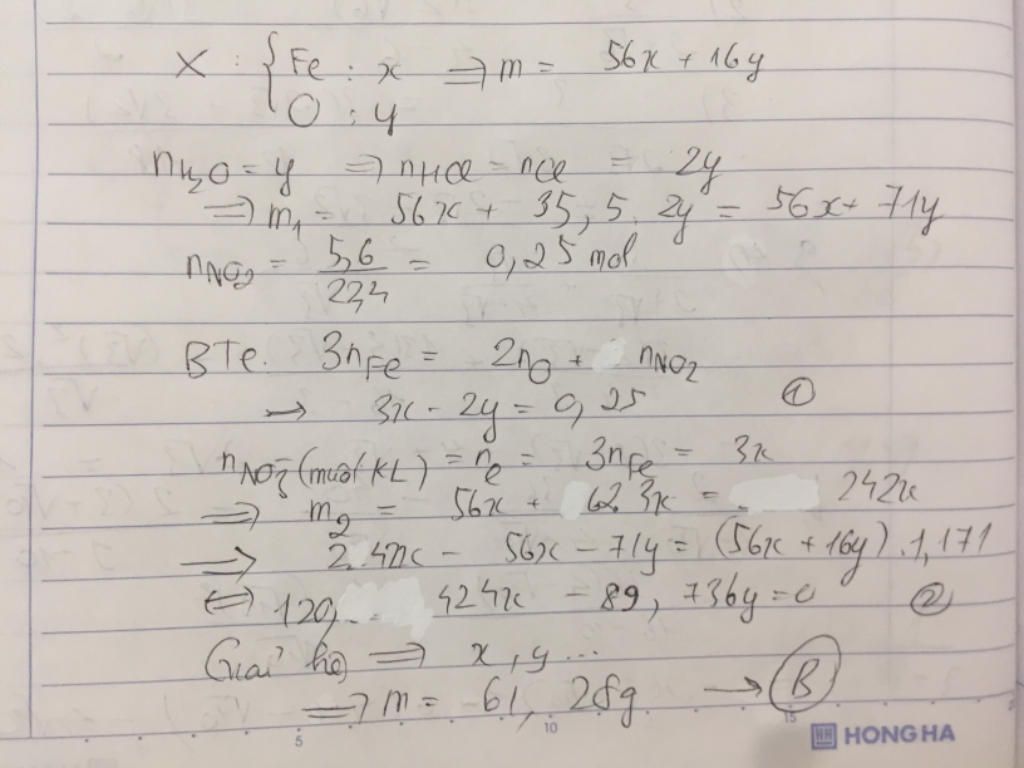 X : { Fe : x ⇒ m = 56x + 16y
O : y
nH₂O = y ⇒ nHCl = nCl = 2y
⇒ m₁ = 56x + 35,5. 2y = 56x + 71y
nNO₂ = 5,6/22,4 = 0,25 mol
BTe. 3nFe = 2nO + nNO₂
→ 3x - 2y = 0,25 ①
nNO₃⁻ (muối KL) = ne = 3nFe = 3x
⇒ m₂ = 56x + 62.3x = 242x
⇒ 242x - 56x - 71y = (56x + 16y).1,171
⇔ 120, 424x - 89,736y = 0 ②
Giải hệ ⇒ x, y ...
⇒ m = 61,28g → B
5 10 15
HH HONG HA